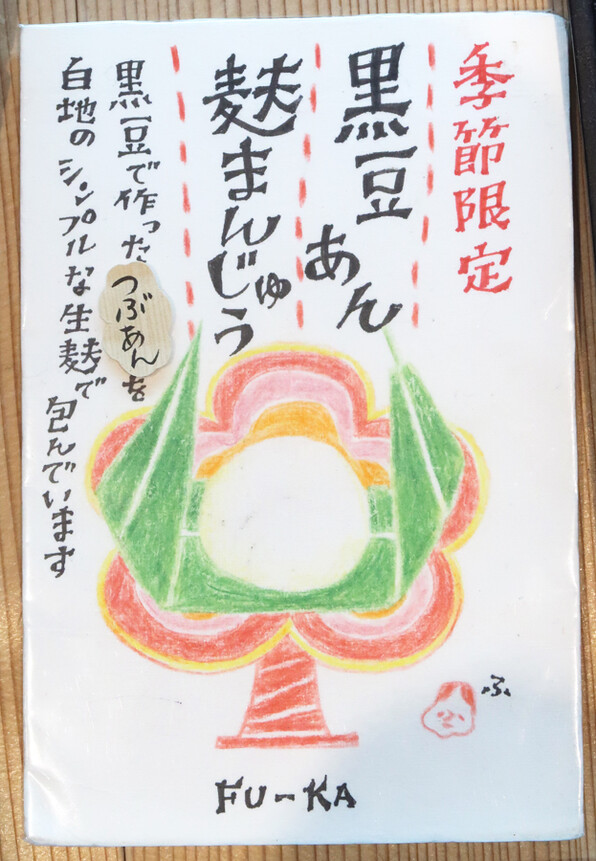 季節限定
黒豆あん
麩まんじゅう
黒豆で作ったつぶあんを
白地のシンプルな生麩で
包んでいます
ふ
FU-KA